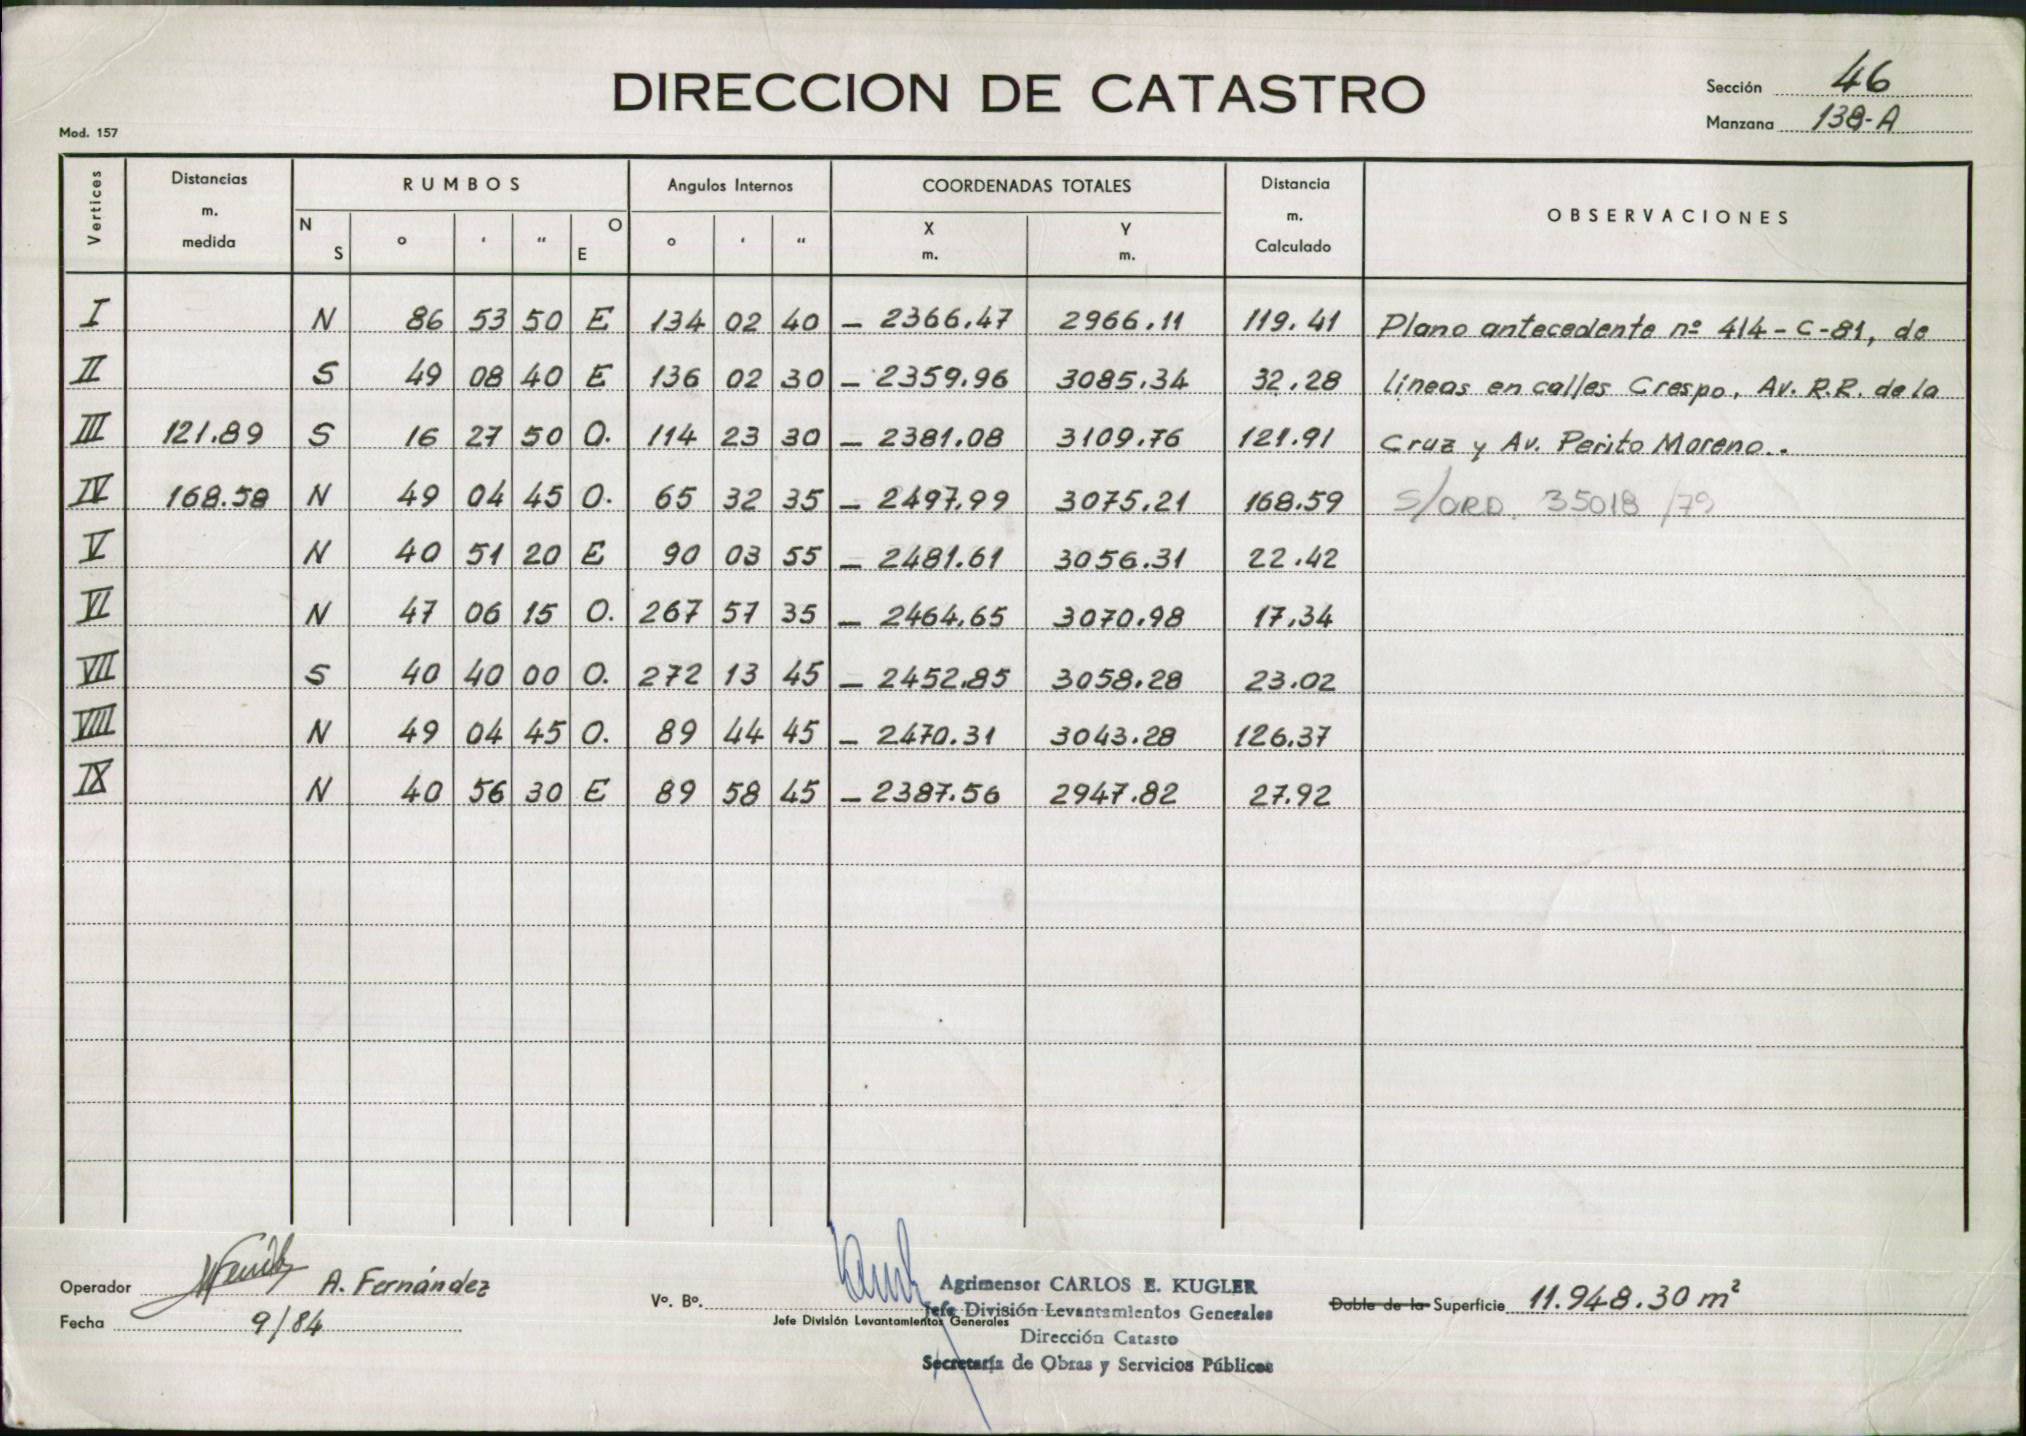 DIRECCION DE CATASTRO
Sección 46
Manzana 138-A
Mod. 157
Vertices
Distancias m. medida
RUMBOS
N S ° ' " O E
Angulos Internos
° ' "
COORDENADAS TOTALES
X m. Y m.
Distancia m. Calculado
OBSERVACIONES
I N 86 53 50 E 134 02 40 – 2366.47 2966.11 119.41 Plano antecedente nº 414-C-81, de
II S 49 08 40 E 136 02 30 – 2359.96 3085.34 32.28 líneas en calles Crespo, Av. R.R. de la
III 121.89 S 16 27 50 O. 114 23 30 – 2381.08 3109.76 121.91 Cruz y Av. Perito Moreno..
IV 168.58 N 49 04 45 O. 65 32 35 – 2497.99 3075.21 168.59 S/ORD. 35018/79
V N 40 51 20 E 90 03 55 – 2481.61 3056.31 22.42
VI N 47 06 15 O. 267 57 35 – 2464.65 3070.98 17.34
VII S 40 40 00 O. 272 13 45 – 2452.85 3058.28 23.02
VIII N 49 04 45 O. 89 44 45 – 2470.31 3043.28 126.37
IX N 40 56 30 E 89 58 45 – 2387.56 2947.82 27.92
Operador A. Fernández
Fecha 9/84
Vº. Bº.
Jefe División Levantamientos Generales
Agrimensor CARLOS E. KUGLER
Jefe División Levantamientos Generales
Dirección Catasto
Secretaría de Obras y Servicios Públicos
Doble de la Superficie 11.948.30 m²